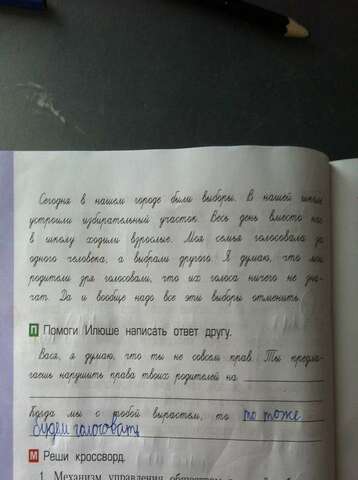 Сегодня в нашем городе были выборы. В нашей школе
устроили избирательный участок. Весь день вместо нас
в школу ходили взрослые. Моя семья голосовала за
одного человека, а выбрали другого. Я думаю, что мои
родители зря голосовали, что их голоса ничего не зна-
чат. Да и вообще надо все эти выборы отменить.
П Помоги Илюше написать ответ другу.
Вася, я думаю, что ты не совсем прав. Ты предла-
гаешь нарушить права твоих родителей на
Когда мы с тобой вырастем, то то тоже
будем голосовать
М Реши кроссворд.
1. Механизм управления обществом